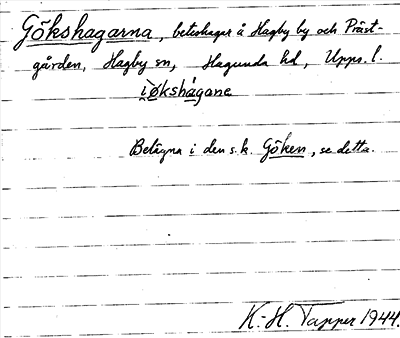 Gökshagarna, beteshagar å Hagby by och Präst-
gården, Hagby sn, Hagunda hd, Upps. l.
Belägna i den s.k. Göken, se detta.
K.-H. Tapper 1944.